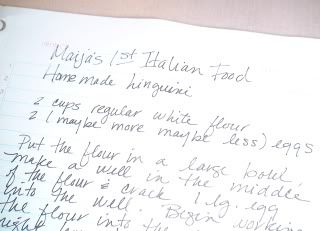 Maija's 1st Italian Food
Homemade linguini
2 cups regular white flour
2 (maybe more maybe less) eggs
Put the flour in a large bowl,
make a well in the middle
of the flour & crack 1 lg. egg
into the well. Begin working
the flour into the
right